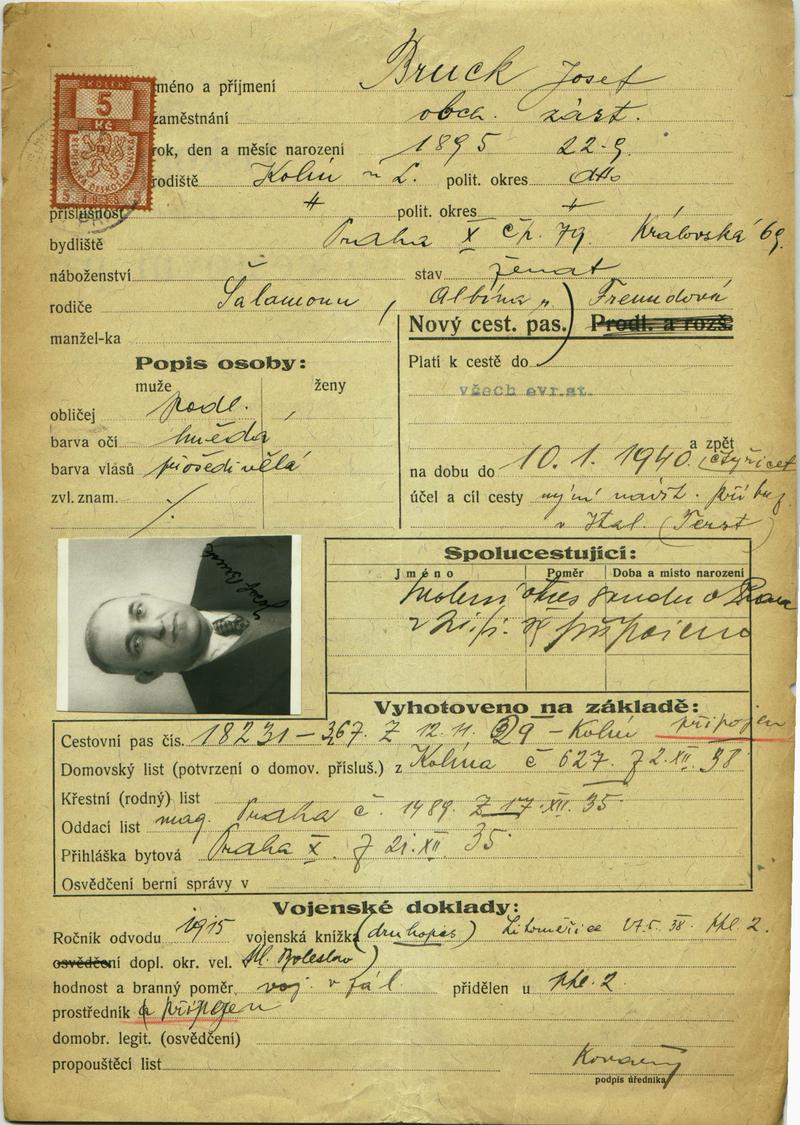 KOLEK
5
Kč
REPUBLIKA ČESKOSLOVENSKÁ
5 1938
méno a příjmení Bruck Josef
zaměstnání obch. zást.
rok, den a měsíc narození 1895 22.9.
rodiště Kolín n L. polit. okres dtto
příslušnost polit. okres
bydliště Praha X čp. 79. Královská 69.
náboženství stav ženat
rodiče Šalamoun, Albína r. Freundová
manžel-ka
Nový cest. pas. Prodl. a rozš.
Popis osoby:
muže ženy
obličej podl.
barva očí hnědá
barva vlasů prošedivělá
zvl. znam. /.
Platí k cestě do
všech evr.st.
a zpět
na dobu do 10. 1. 1940. (čtyřicet
účel a cíl cesty nyní návšt. příbuz.
v Ital. (Terst)
Josef Bruck
Spolucestující:
Jméno Poměr Doba a místo narození
Vyhotoveno na základě:
Cestovní pas čís. 18231-367. Z 12. 11. 29 - Kolín připojen
Domovský list (potvrzení o domov. přísluš.) z Kolína č 627. Z 2. XII. 38
Křestní (rodný) list
Oddací list mag. Praha č. 1489. Z 17. XII. 35
Přihláška bytová Praha X. Z 21. XII 35
Osvědčení berní správy v
Vojenské doklady:
Ročník odvodu 1915 vojenská knížka (druhopis) Litoměřice 27.5. 38
osvědčení dopl. okr. vel. Ml. Boleslav)
hodnost a branný poměr voj. v přidělen u
prostředník a připojen
domobr. legit. (osvědčení)
propouštěcí list
podpis úředníka